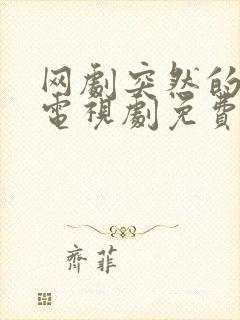 网劇突然的
電視劇免費
齊菲